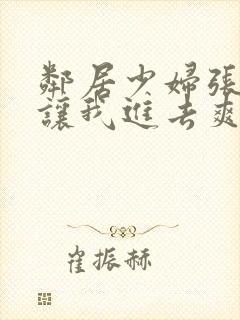 鄰居少婦張
讓我進去爽
崔振赫